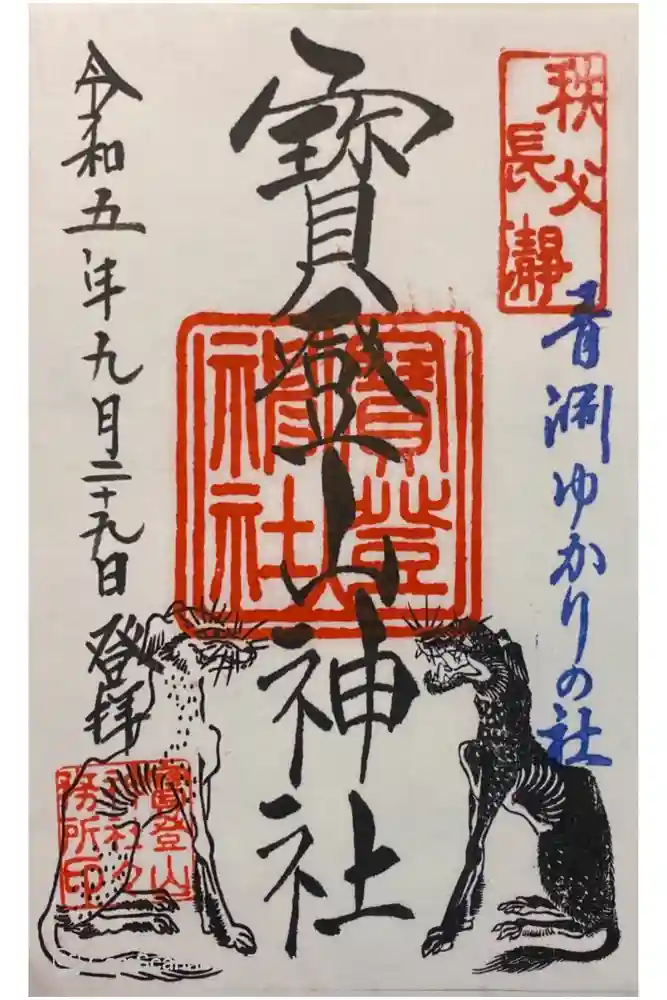 秩父
長瀞
青淵ゆかりの社
寶登山神社
寶登山
神社
令和五年九月二十九日 登拝
寶登山
神社々
務所印